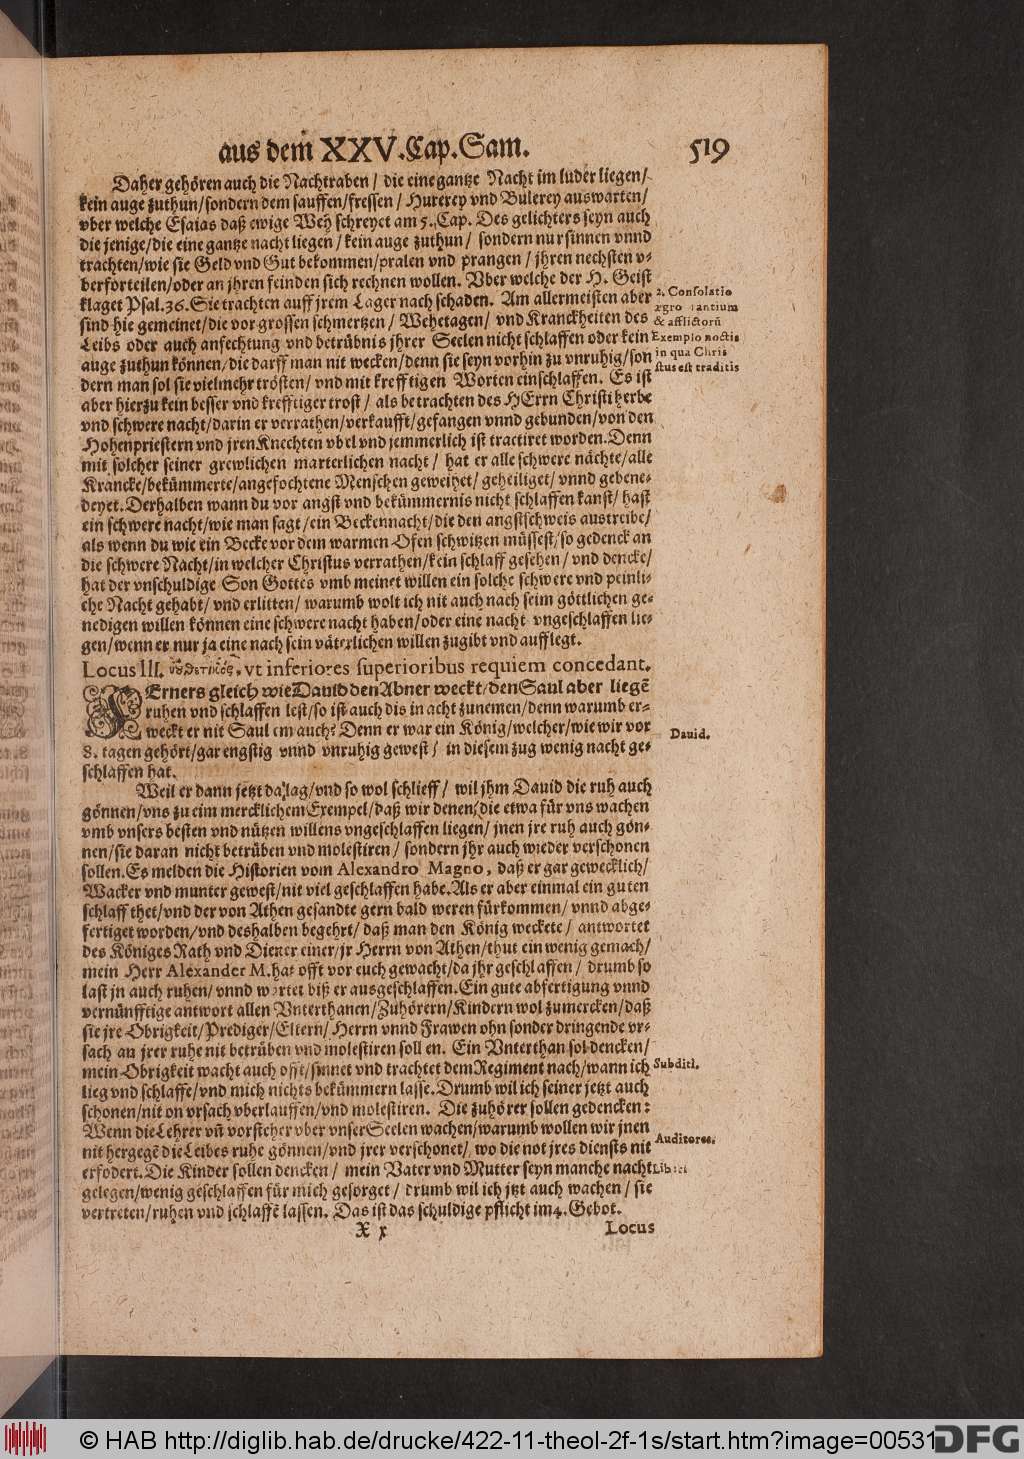 aus dem XXV. Cap. Sam. 519
Daher gehören auch die Nachtraben / die eine gantze Nacht im luder liegen /
kein auge zuthun / sondern dem sauffen / fressen / Hurerey vnd Bulerey auswarten /
vber welche Esaias daß ewige Weh schreyet am 5. Cap. Des gelichters seyn auch
die jenige / die eine gantze nacht liegen / kein auge zuthun / sondern nur sinnen vnnd
trachten / wie sie Geld vnd Gut bekommen / pralen vnd prangen / jhren nechsten v-
berforteilen / oder an jhren feinden sich rechnen wollen. Vber welche der H. Geist
klaget Psal. 36. Sie trachten auff jrem Lager nach schaden. Am allermeisten aber
sind hie gemeinet / die vor grossen schmertzen / Wehetagen / vnd Kranckheiten des
Leibs oder auch anfechtung vnd betrübnis jhrer Seelen nicht schlaffen oder kein
auge zuthun können / die darff man nit wecken / denn sie seyn vorhin zu vnruhig / son
dern man sol sie vielmehr trösten / vnd mit krefftigen Worten einschlaffen. Es ist
aber hierzu kein besser vnd krefftiger trost / als betrachten des HErrn Christi herbe
vnd schwere nacht / darin er verrathen / verkaufft / gefangen vnnd gebunden / von den
Hohenpriestern vnd jren Knechten vbel vnd jemmerlich ist tractiret worden. Denn
mit solcher seiner grewlichen marterlichen nacht / hat er alle schwere nächte / alle
Krancke / bekümmerte / angefochtene Menschen geweihet / geheiliget / vnnd gebene-
deyet. Derhalben wann du vor angst vnd bekümmernis nicht schlaffen kanst / hast
ein schwere nacht / wie man sagt / ein Beckennacht / die den angstschweis austreibe /
als wenn du wie ein Becke vor dem warmen Ofen schwitzen müssest / so gedenck an
die schwere Nacht / in welcher Christus verrathen / kein schlaff gesehen / vnd dencke /
hat der vnschuldige Son Gottes vmb meinet willen ein solche schwere vnd peinli-
che Nacht gehabt / vnd erlitten / warumb wolt ich nit auch nach seim göttlichen ge-
nedigen willen können eine schwere nacht haben / oder eine nacht vngeschlaffen lie-
gen / wenn er nur ja eine nach sein väterlichen willen zugibt vnd aufflegt.
2. Consolatio
& afflictorū
Exemplo noctis
in qua Chris
stus est traditis
Locus III. vt inferiores superioribus requiem concedant.
FErners gleich wie Dauid den Abner weckt / den Saul aber liegē
ruhen vnd schlaffen lest / so ist auch dis in acht zunemen / denn warumb er-
weckt er nit Saul en auch? Denn er war ein König / welcher / wie wir vor
8. tagen gehört / gar engstig vnnd vnruhig gewest / in diesem zug wenig nacht ge-
schlaffen hat.
Dauid.
Weil er dann jetzt da lag / vnd so wol schlieff / wil jhm Dauid die ruh auch
gönnen / vns zu eim mercklichem Exempel / daß wir denen / die etwa für vns wachen
vmb vnsers besten vnd nützen willens vngeschlaffen liegen / jnen jre ruh auch gön-
nen / sie daran nicht betrüben vnd molestiren / sondern jhr auch wieder verschonen
sollen. Es melden die Historien vom Alexandro Magno, daß er gar gewecklich /
Wacker vnd munter gewest / nit viel geschlaffen habe. Als er aber einmal ein guten
schlaff thet / vnd der von Athen gesandte gern bald weren fürkommen / vnnd abge-
fertiget worden / vnd deshalben begehrt / daß man den König weckete / antwortet
des Königes Rath vnd Diener einer / jr Herrn von Athen / thut ein wenig gemach /
mein Herr Alexander M. hat offt vor euch gewacht / da jhr geschlaffen / drumb so
last jn auch ruhen / vnnd wartet biß er ausgeschlaffen. Ein gute abfertigung vnnd
vernünfftige antwort allen Vnterthanen / Zuhörern / Kindern wol zumercken / daß
sie jre Obrigkeit / Prediger / Eltern / Herrn vnnd Frawen ohn sonder dringende vr-
sach an jrer ruhe nit betrüben vnd molestiren soll en. Ein Vnterthan sol dencken /
mein Obrigkeit wacht auch offt / sinnet vnd trachtet dem Regiment nach / wann ich
lieg vnd schlaffe / vnd mich nichts bekümmern lasse. Drumb wil ich seiner jetzt auch
schonen / nit on vrsach vberlauffen / vnd molestiren. Die zuhörer sollen gedencken:
Wenn die Lehrer vn̄ vorsteher vber vnser Seelen wachen / warumb wollen wir jnen
nit hergegē die Leibes ruhe gönnen / vnd jrer verschonet / wo die not jres diensts nit
erfodert. Die Kinder sollen dencken / mein Vater vnd Mutter seyn manche nacht
gelegen / wenig geschlaffen für mich gesorget / drumb wil ich jtzt auch wachen / sie
vertreten / ruhen vnd schlaffē lassen. Das ist das schuldige pflicht im 4. Gebot.
Subditi.
Auditores.
Liberi
X x Locus
© HAB http://diglib.hab.de/drucke/422-11-theol-2f-1s/start.htm?image=00531
DFG